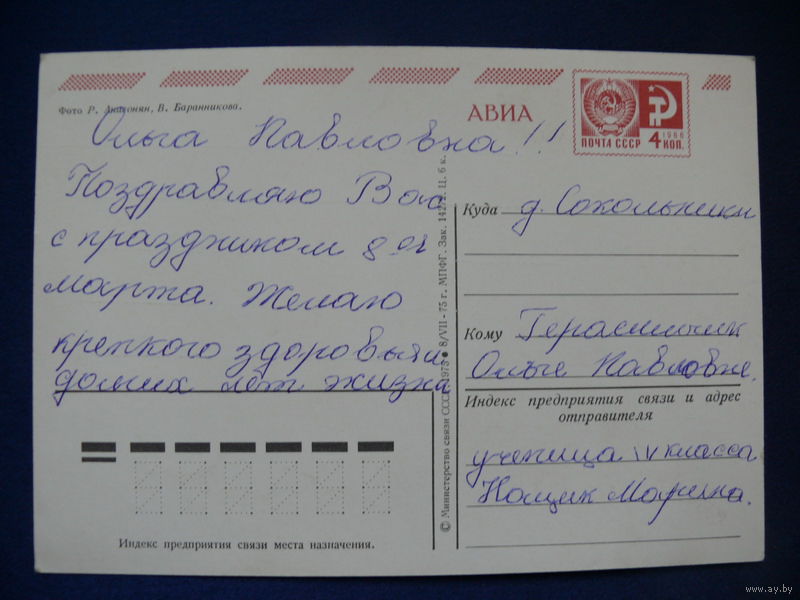 Фото Р. Акопян, В. Баранникова.
АВИА
1966
ПОЧТА СССР 4 КОП.
Ольга Павловна!!
Поздравляю Вас
с праздником 8 ой
марта. Желаю
крепкого здоровья и
долгих лет жизни
Куда д. Сокольники
Кому Герасимчик
Ольге Павловне.
Индекс предприятия связи и адрес
отправителя
ученица IV класса
Нощик Марина.
Индекс предприятия связи места назначения.
© Министерство связи СССР. 1975 ● 8/VII-75 г. МПФГ. Зак. Ц. 6 к.
www.ay.by